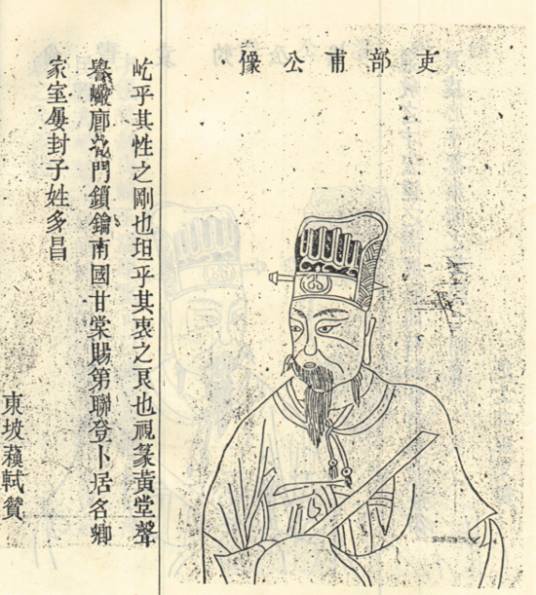 吏部甫公像
屹乎其性之剛也坦乎其衷之良也視篆黃堂聲
譽巖廊北門鎖鑰南國甘棠賜第聯登卜居名鄉
家室屢封子姓多昌
東坡蘇軾贊